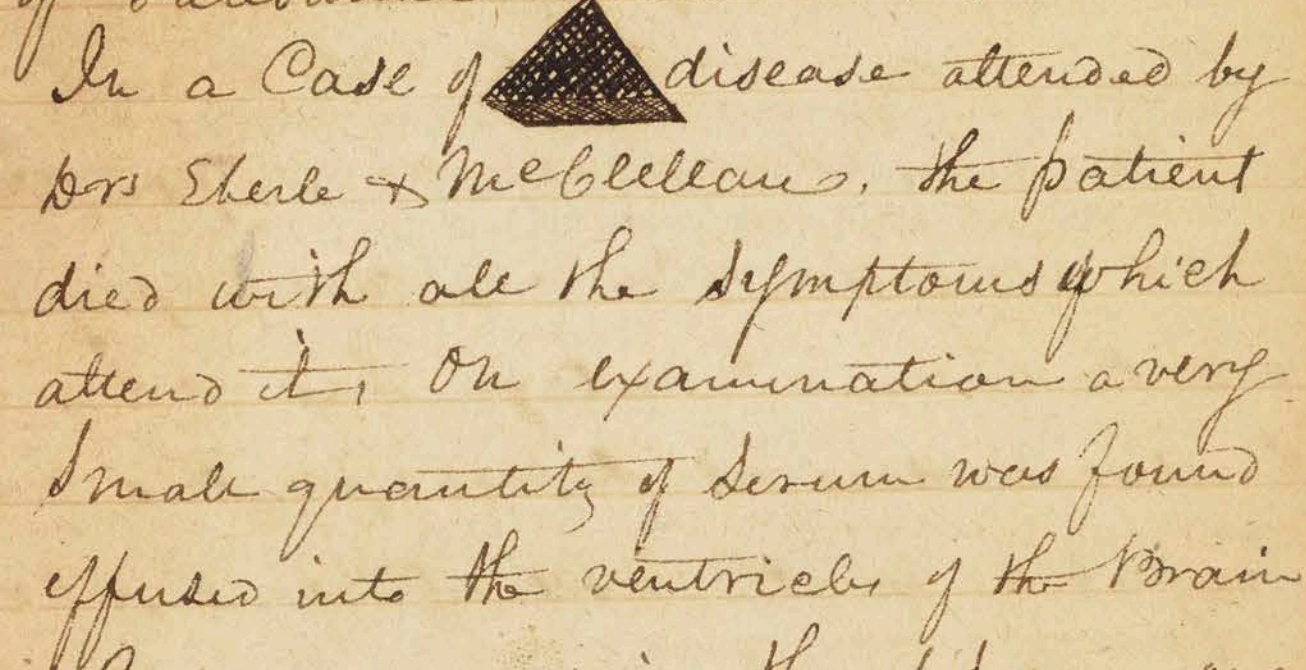 of
In a Case of disease attended by
Drs Eberle & McClellan, the patient
died with all the symptoms which
attend it, On examination a very
Small quantity of Serum was found
effused into the ventricles of the Brain